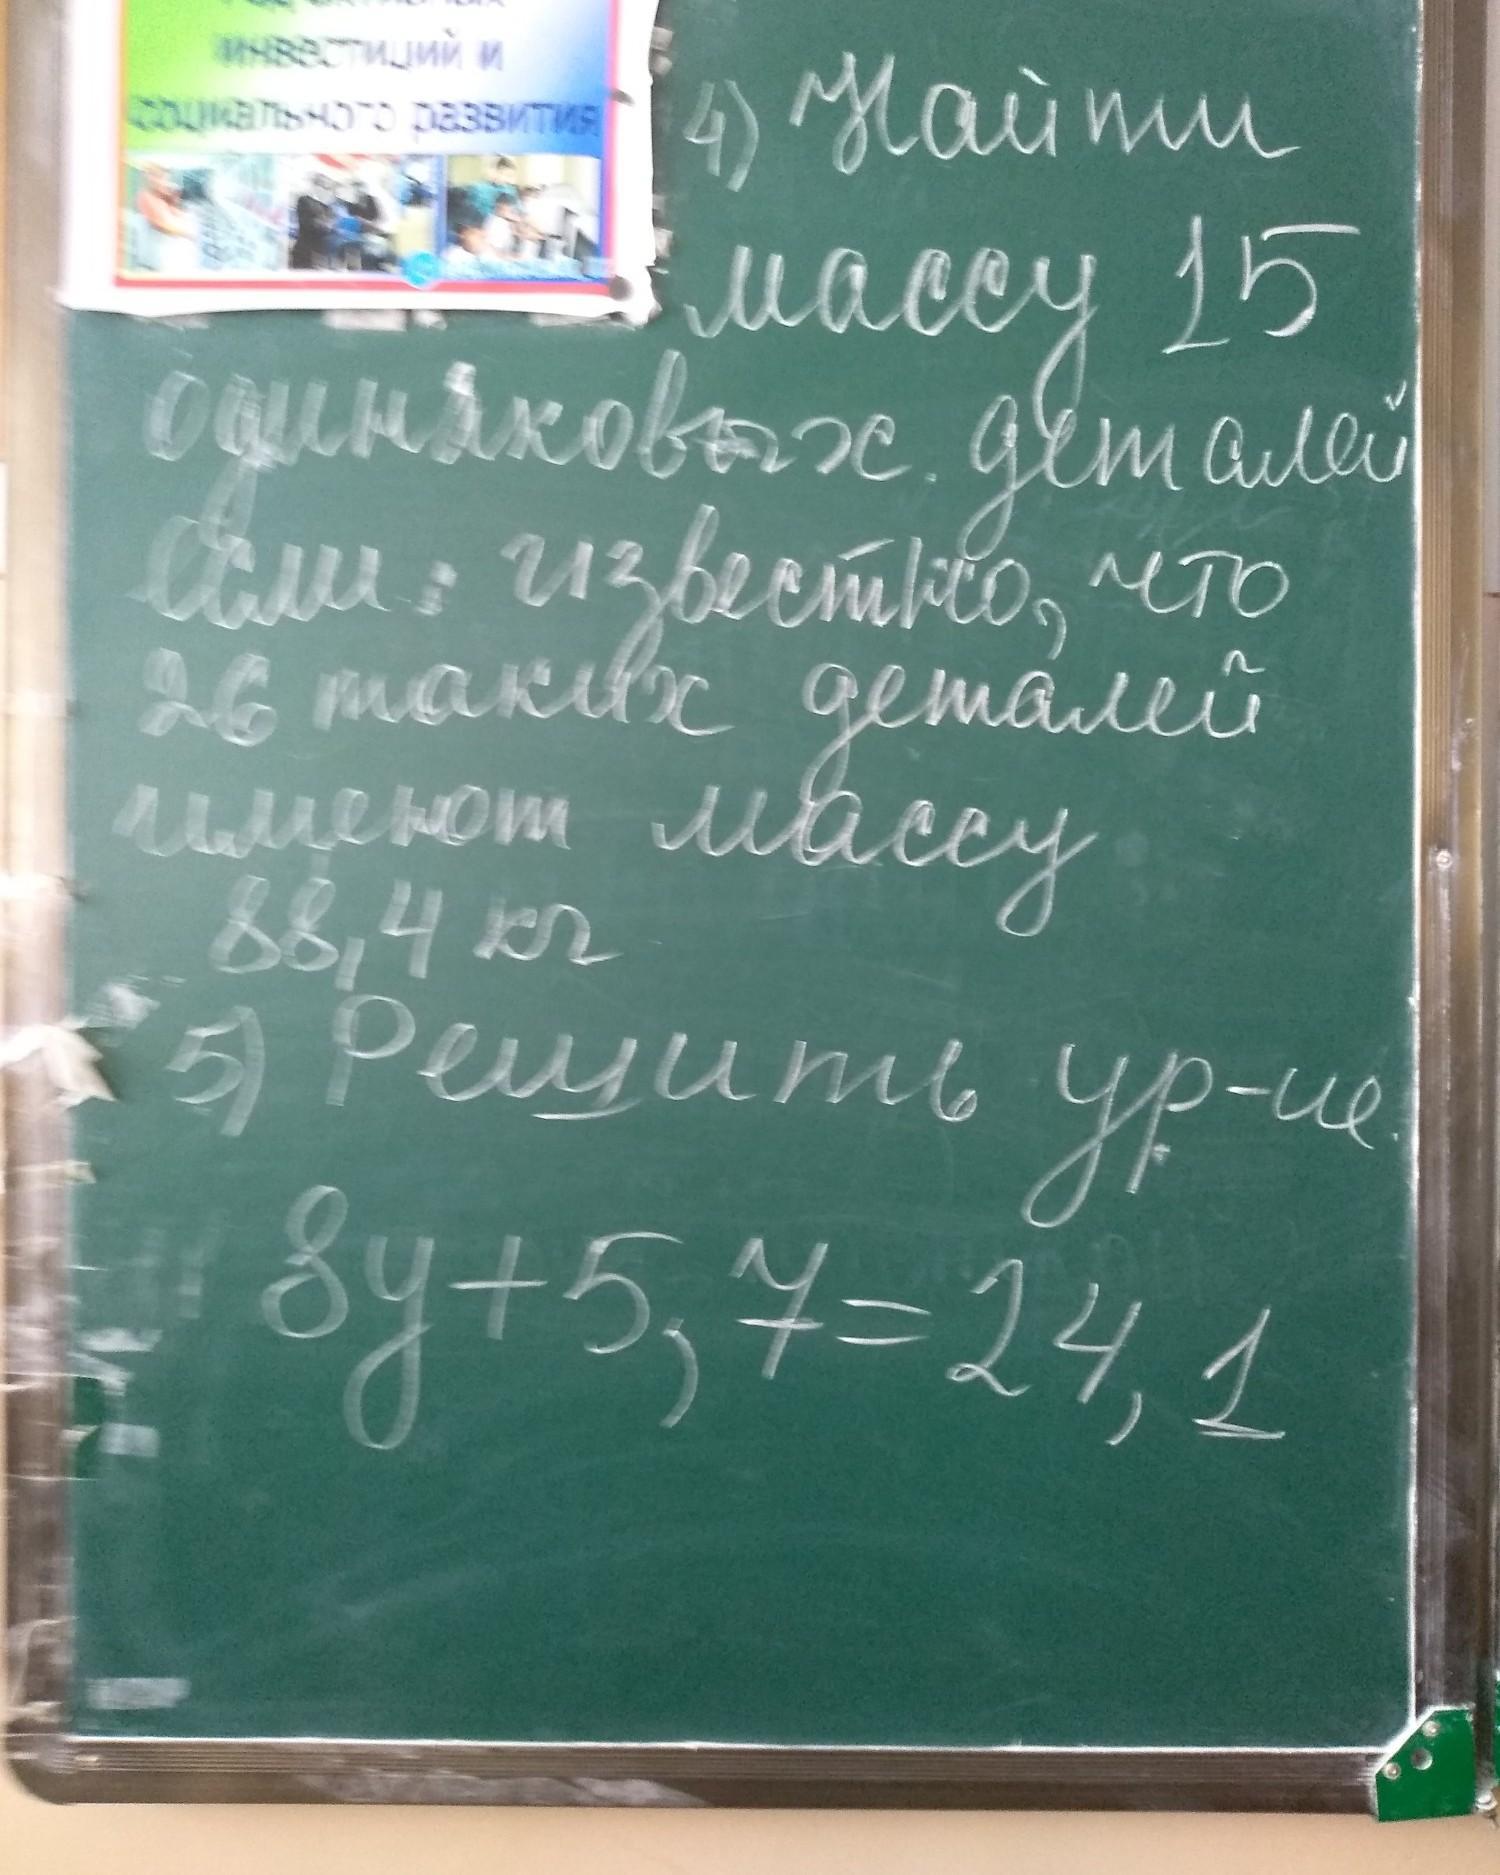 инвестиций и
социального развития
4) Найти
массу 15
одинаковых деталей
если: известно, что
26 таких деталей
имеют массу
88,4 кг
5) Решить ур-ие.
8y+5,7=24,1